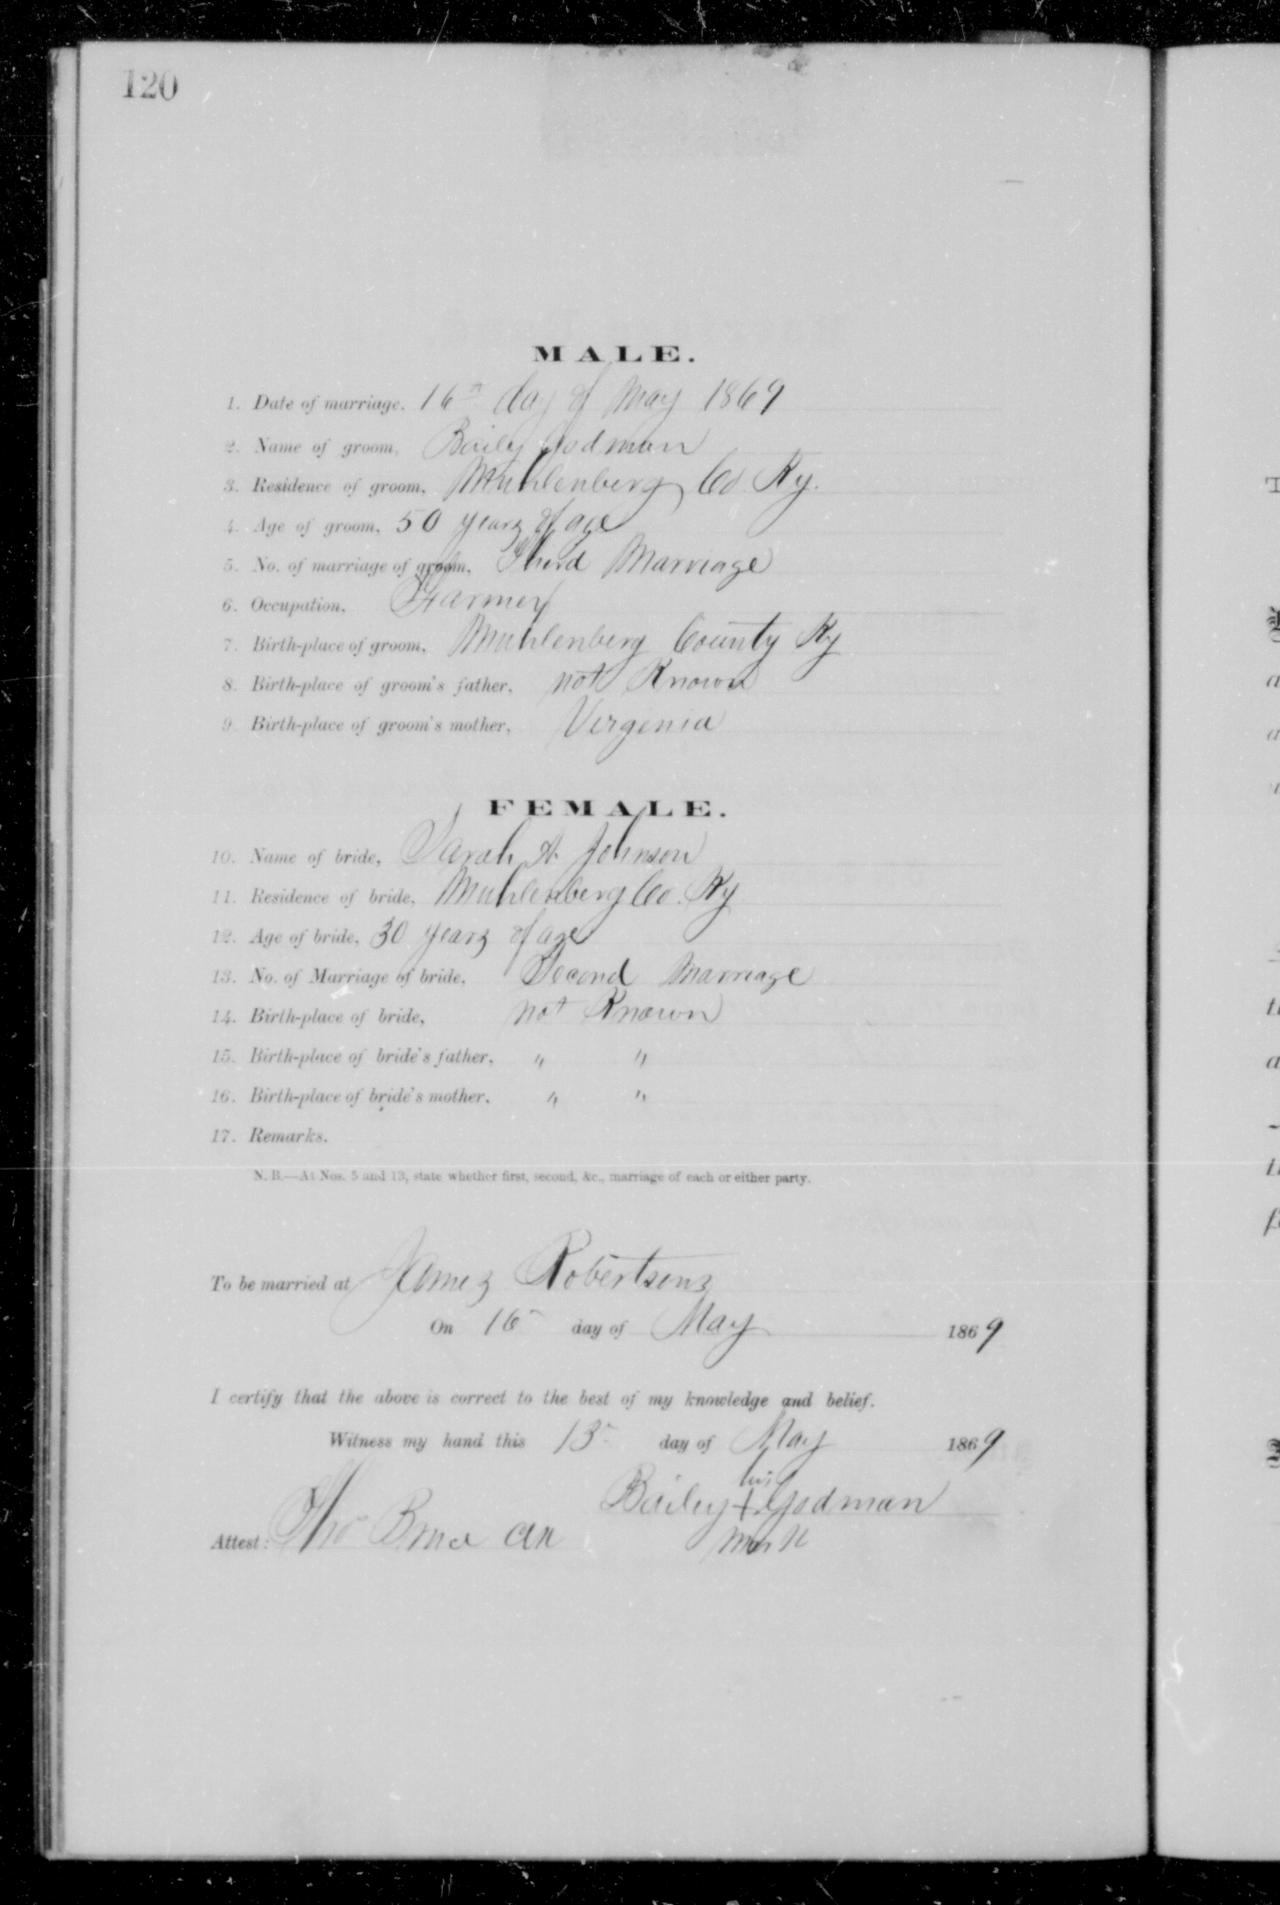 120
MALE.
1. Date of marriage, 16th day of May 1869
2. Name of groom, Baily Godman
3. Residence of groom, Muhlenberg Co. Ky.
4. Age of groom, 50 years of age
5. No. of marriage of groom, Third Marriage
6. Occupation, Farmer
7. Birth-place of groom, Muhlenberg County Ky
8. Birth-place of groom's father, not Known
9. Birth-place of groom's mother, Virgenia
FEMALE.
10. Name of bride, Sarah A. Johnson
11. Residence of bride, Muhlenberg Co. Ky
12. Age of bride, 30 years of age
13. No. of Marriage of bride, Second Marriage
14. Birth-place of bride, not Known
15. Birth-place of bride's father, " "
16. Birth-place of bride's mother, " "
17. Remarks.
N. B.—At Nos. 5 and 13, state whether first, second, &c., marriage of each or either party.
To be married at James Robertsons
On 16 day of May 1869
I certify that the above is correct to the best of my knowledge and belief.
Witness my hand this 13 day of May 1869
his
Bailey + Godman
mark
Attest: Tho